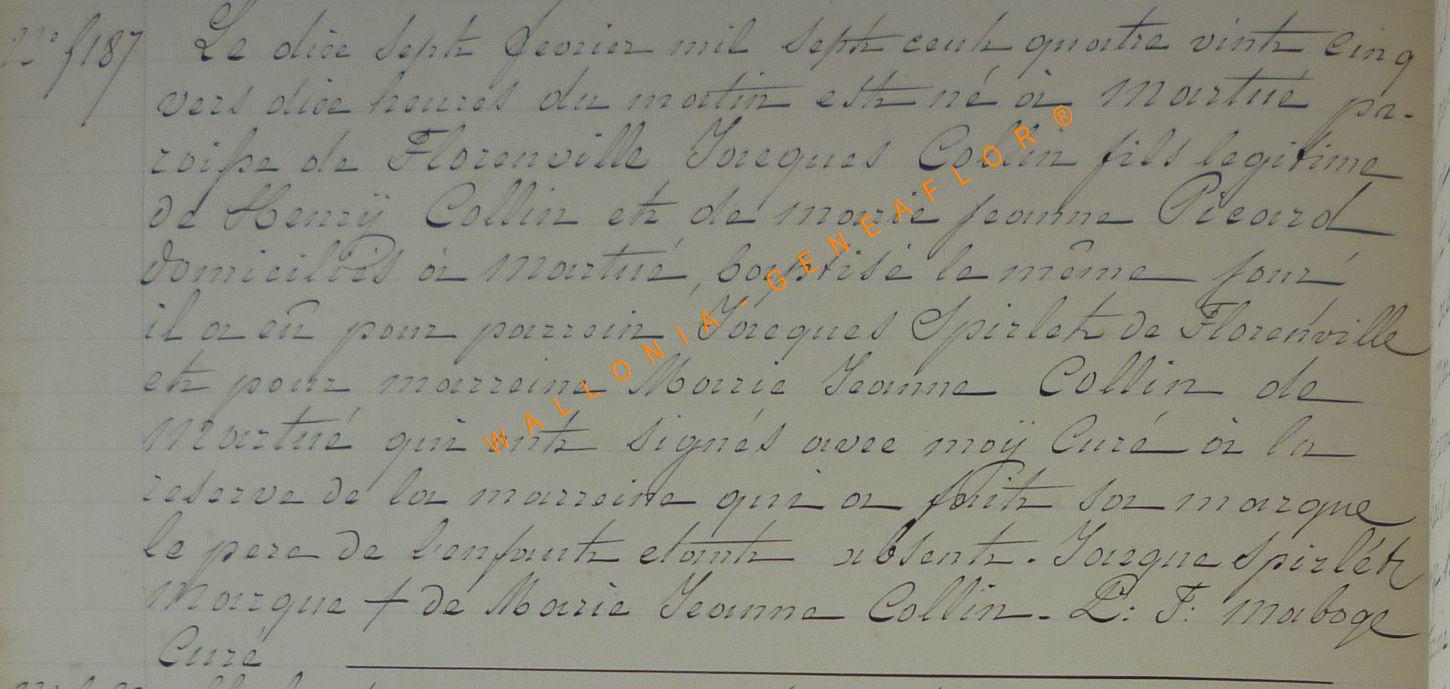 N° 1187 Le dix sept fevrier mil sept cent quatre vint cinq
vers dix heures du matin est né à Martué pa-
roisse de Florenville Jacques Collin fils legitime
de Henrÿ Collin et de marie jeanne Picard
domiciliés à Martué, baptisé le même jour
il a eû pour parrein Jacques Spirlet de Florenville
et pour marreine Marie Jeanne Collin de
Martué qui ont signés avec moÿ Curé à la
reserve de la marreine qui a fait sa marque
le pere de l'enfant etant absent. Jacque Spirlét
Marque + de Marie Jeanne Collin. L: F: Maboge
Curé
WALLONIA-GENEAFLOR®